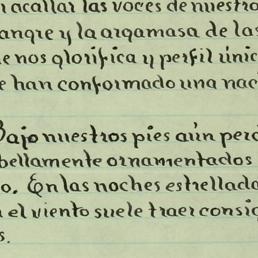 acallar las voces de nuestro
angre y la argamasa de las
e nos glorifica y perfil únic
e han conformado una naci
Bajo nuestros pies aún perd
bellamente ornamentados
o. En las noches estrellada
el viento suele traer consig
s.